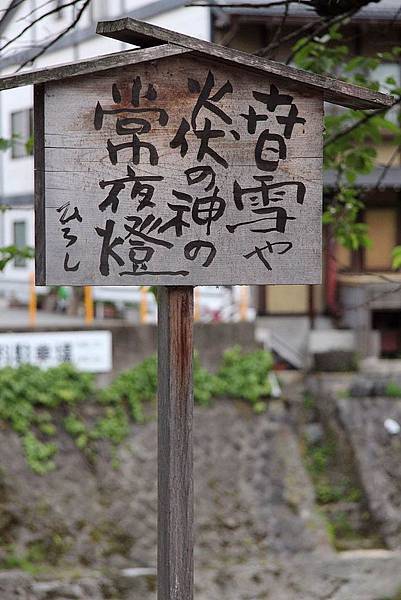 昔雪や
火伏の神の
常夜燈
ひろし
駐車場